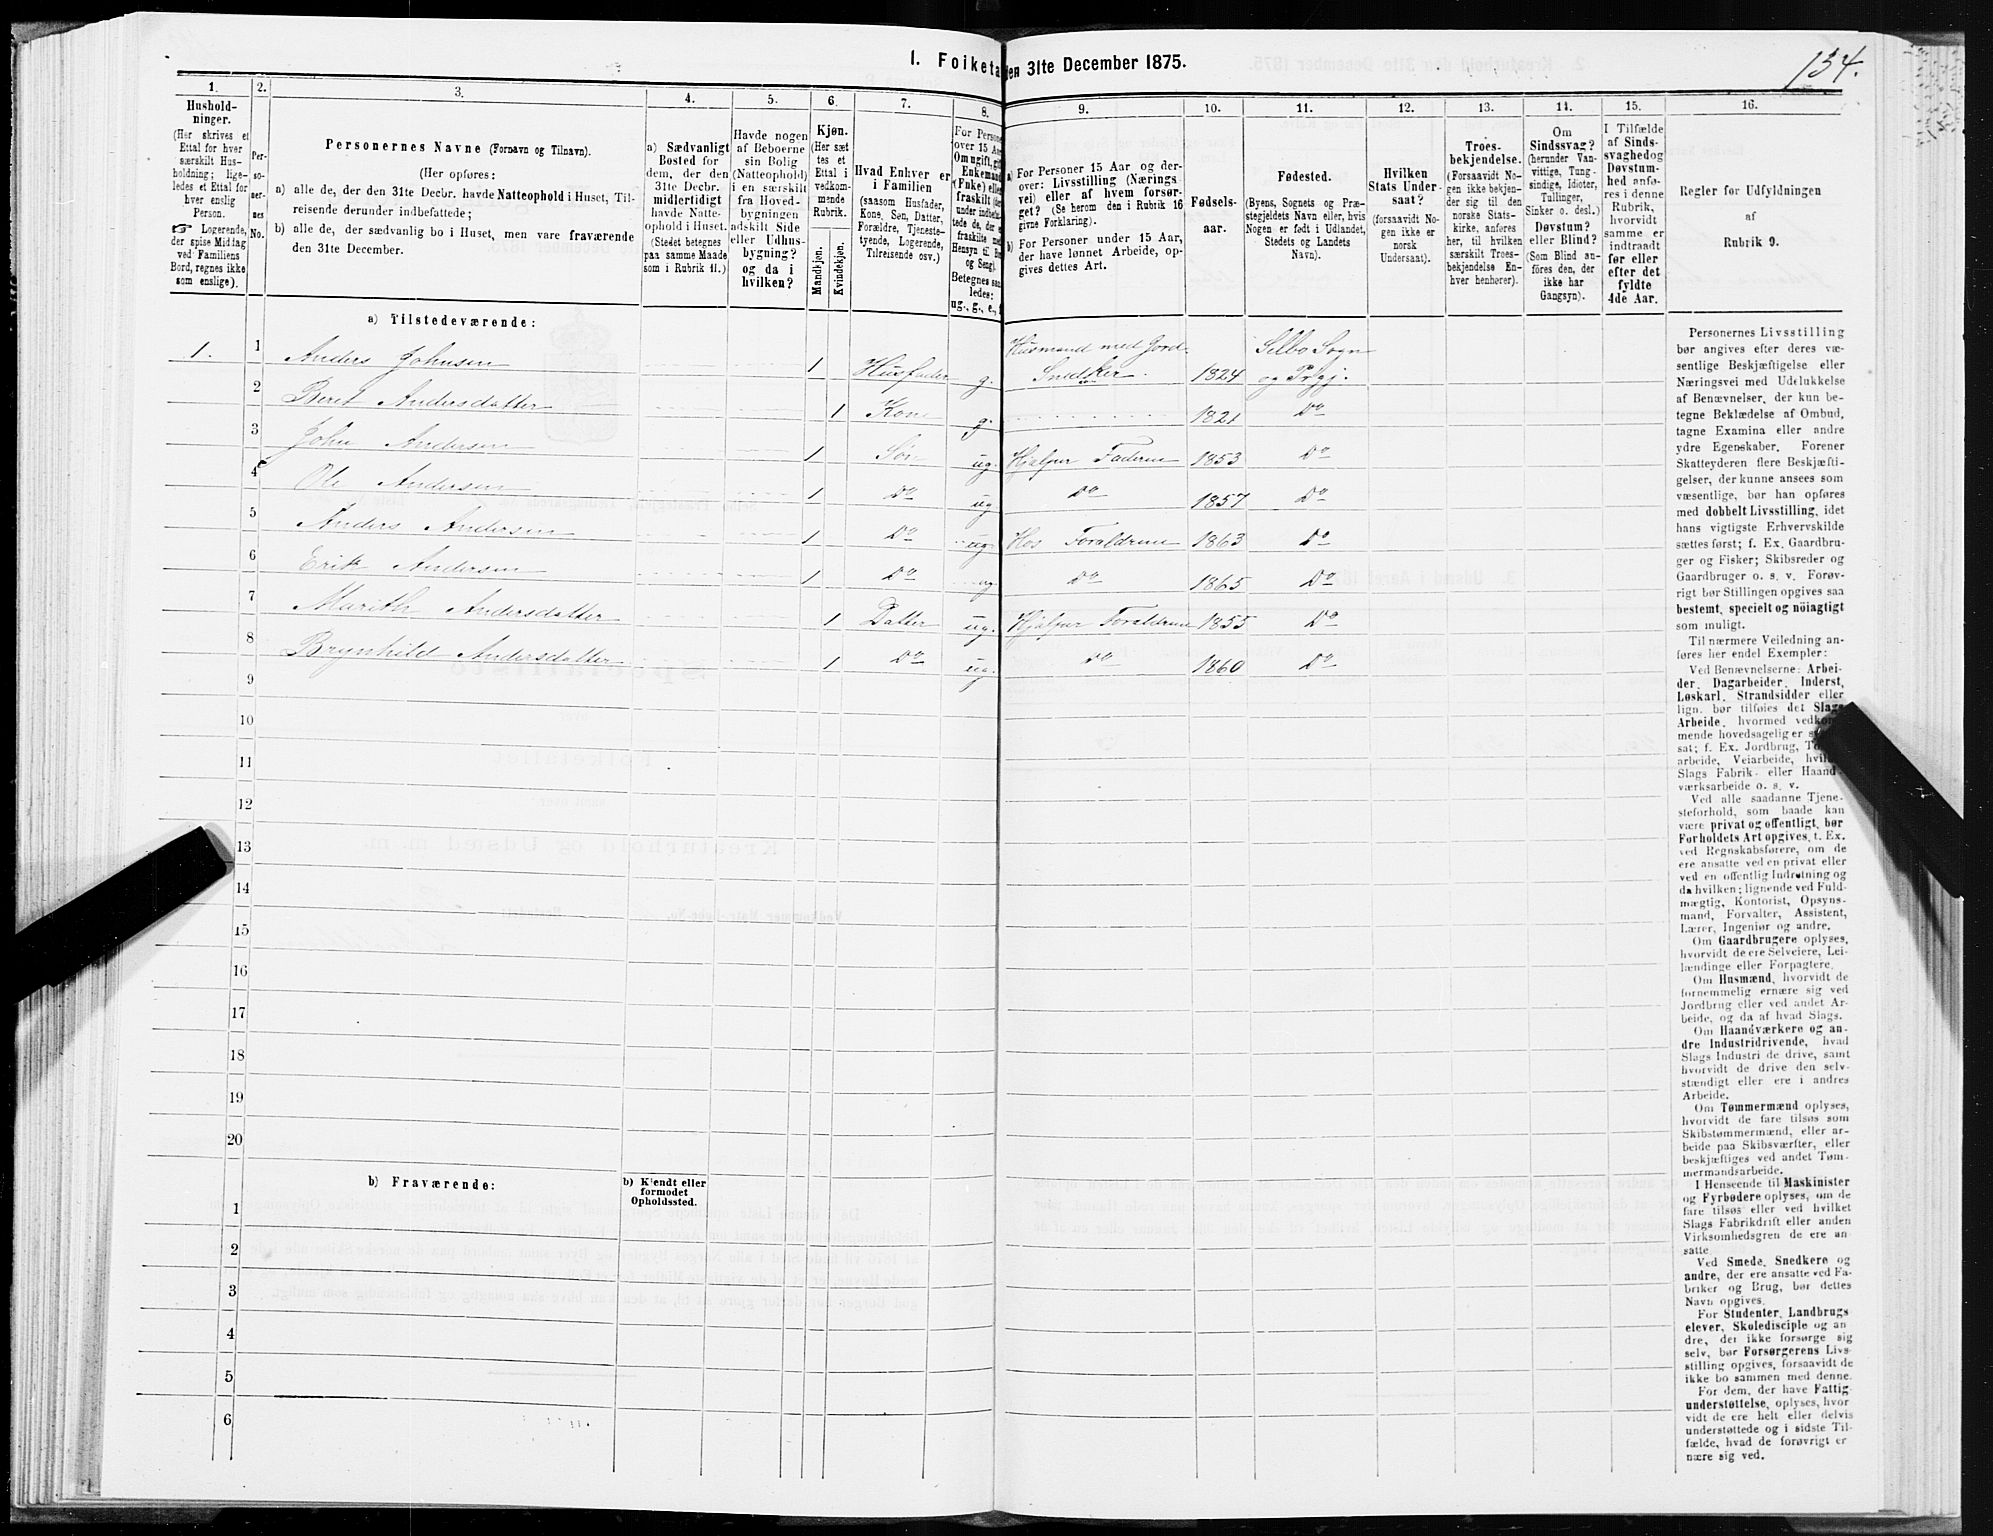 I. Folketa
den 31te December 1875.
134.
1.
Hushold-
ninger.
(Her skrives et
Ettal for hver
særskilt Hus-
holdning; lige-
ledes et Ettal for
hver enslig
Person.
☞ Logerende,
der spise Middag
ved Familiens
Bord, regnes ikke
som enslige).
2.
Per-
so-
ner-
nes
No.
3.
Personernes Navne (Fornavn og Tilnavn).
(Her opføres:
a) alle de, der den 31te Decbr. havde Natteophold i Huset, Til-
reisende derunder indbefattede;
b) alle de, der sædvanlig bo i Huset, men vare fraværende
den 31te December.
4.
a) Sædvanligt
Bosted for
dem, der den
31te Decbr.
midlertidigt
havde Natte-
ophold i Huset.
(Stedet betegnes
paa samme Maade
som i Rubrik 11.)
5.
Havde nogen
af Beboerne
sin Bolig
(Natteophold)
i en særskilt
fra Hoved-
bygningen
adskilt Side
eller Udhus-
bygning?
og da i
hvilken?
6.
Kjøn.
(Her sæt
tes et
Ettal i
vedkom-
mende
Rubrik.
Mandkjøn.
Kvindekjøn.
7.
Hvad Enhver er
i Familien
(saasom Husfader,
Kone, Søn, Datter,
Forældre, Tjeneste-
tyende, Logerende,
Tilreisende osv.)
8.
For Persone
over 15 Aar
Om ugift, gift
Enkemand
(Enke) eller
fraskilt
Betegnes saa
ledes:
ug., g., e.,
9.
a) For Personer 15 Aar og der-
over: Livsstilling (Nærings
vei) eller af hvem forsør-
get? (Se herom den i Rubrik 16
givne Forklaring).
b) For Personer under 15 Aar,
der have lønnet Arbeide, op-
gives dettes Art.
10.
Fødsels-
aar.
11.
Fødested.
(Byens, Sognets og Præ-
stegjeldets Navn eller, hvis
Nogen er født i Udlandet,
Stedets og Landets
Navn).
12.
Hvilken
Stats Under-
saat?
(forsaavidt No-
gen ikke er
norsk
Undersaat).
13.
Troes-
bekjendelse.
(Forsaavidt No-
gen ikke bekjen-
der sig til den
norske Stats-
kirke, anføres
her, til hvilken
særskilt Troes-
bekjendelse En-
hver henhører).
14.
Om
Sindssvag?
(herunder Van-
vittige, Tung-
sindige, Idioter,
Tullinger,
Sinker o. desl.)
Døvstum?
eller Blind?
(Som Blind an-
føres den, der
ikke har
Gangsyn).
15.
I Tilfælde
af Sinds-
svaghed og
Døvstum-
hed anfø-
res i denne
Rubrik,
hvorvidt
samme er
indtraadt
før eller
efter det
fyldte
4de Aar.
16.
Regler for Udfyldningen
af
Rubrik 9.
a) Tilstedeværende:
1. 1 Anders Johnsen 1 Husfader g. Husmand med Jord. Snedker. 1824 Selbo Sogn og Prgj.
2 Beret Andersdatter 1 Kone g. 1821 Do
3 John Andersen 1 Søn ug. Hjælper Faderen 1853 Do
4 Ole Andersen 1 Do ug. Do 1857 Do
5 Anders Andersen 1 Do ug. Hos Forældrene 1863 Do
6 Erik Andersen 1 Do ug. Do 1865 Do
7 Marith Andersdatter 1 Datter ug. Hjælper Forældrene 1855 Do
8 Brynhild Andersdatter 1 Do ug. Do 1860 Do
9
10
11
12
13
14
15
16
17
18
19
20
b) Fraværende:
b) Kjendt eller
formodet
Opholdssted.
1
2
3
4
5
6
Personernes Livsstilling
bør angives efter deres væ-
sentlige Beskjæftigelse eller
Næringsvei med Udelukkelse
af Benævnelser, der kun be-
tegne Beklædelse af Ombud,
tagne Examina eller andre
ydre Egenskaber. Forener
Skatteyderen flere Beskjæfti-
gelser, der kunne ansees som
væsentlige, bør han opføres
med dobbelt Livsstilling, idet
hans vigtigste Erhvervskilde
sættes først; f. Ex. Gaardbru-
ger og Fisker; Skibsreder og
Gaardbruger o. s. v. Forøv-
rigt bør Stillingen opgives saa
bestemt, specielt og nöiagtigt
som muligt.
Til nærmere Veiledning an-
føres her endel Exempler:
Ved Benævnelserne: Arbei-
der, Dagarbeider, Inderst,
Løskarl, Strandsidder eller
lign. bør tilføies det Slags
Arbeide, hvormed vedkom-
mende hovedsagelig er
sat; f. Ex. Jordbrug,
arbeide, Veiarbeide,
Slags Fabrik- eller Haand-
værksarbeide o. s. v.
Ved alle saadanne Tjene-
steforhold, som baade kan
være privat og offentligt, bør
Forholdets Art opgives, t. Ex.
ved Regnskabsførere, om de
ere ansatte ved en privat eller
ved en offentlig Indretning og
da hvilken; lignende ved Fuld-
mægtig, Kontorist, Opsyns-
mand, Forvalter, Assistent,
Lærer, Ingeniør og andre.
Om Gaardbrugere oplyses,
hvorvidt de ere Selveiere, Lei-
lændinge eller Forpagtere.
Om Husmænd, hvorvidt de
fornemmelig ernære sig ved
Jordbrug eller ved andet Ar-
beide, og da af hvad Slags.
Om Haandværkere og an-
dre Industridrivende, hvad
Slags Industri de drive, samt
hvorvidt de drive den selv-
stændigt eller ere i andres
Arbeide.
Om Tømmermænd oplyses,
hvorvidt de fare tilsøs som
Skibstømmermænd, eller ar-
beide paa Skibsværfter, eller
beskjæftiges ved andet Tøm-
mermandsarbeide.
I Henseende til Maskinister
og Fyrbødere oplyses, om de
fare tilsøs eller ved hvilket
Slags Fabrikdrift eller anden
Virksomhedsgren de ere an-
satte.
Ved Smede, Snedkere og
andre, der ere ansatte ved Fa-
briker og Brug, bør dettes
Navn opgives.
For Studenter, Landbrugs
elever, Skoledisciple og an
dre, der ikke forsørge sig
selv, bør Forsørgerens Livs-
stilling opgives, forsaavidt de
ikke bo sammen med denne.
For dem, der have Fattig
understøttelse, oplyses, hvor
vidt de ere helt eller delvis
understøttede og i sidste Til-
fælde, hvad de forøvrigt er
nære sig ved.